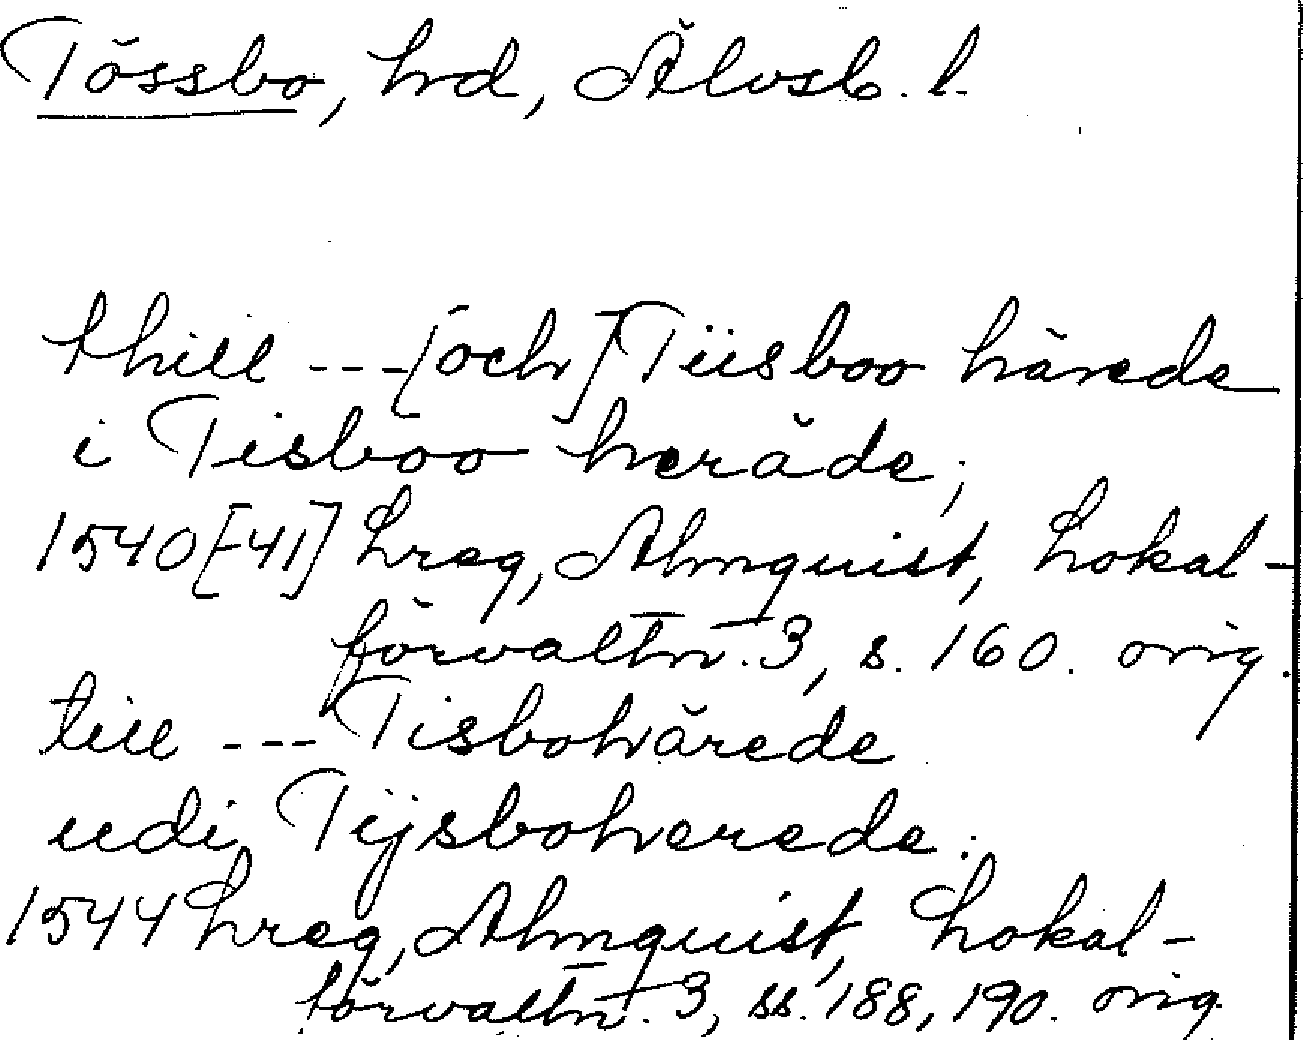 Tössbo, hd, Älvsb. l.
thill ---[och] Tiisboo härede
i Tisboo heräde;
1540[-41] Lreg, Almquist, Lokal-
förvaltn. 3, s. 160. orig.
till --- Tisbohärede
udi Tijsboherede.
1544 Lreg, Almquist, Lokal-
förvaltn. 3, ss. 188, 190. orig.